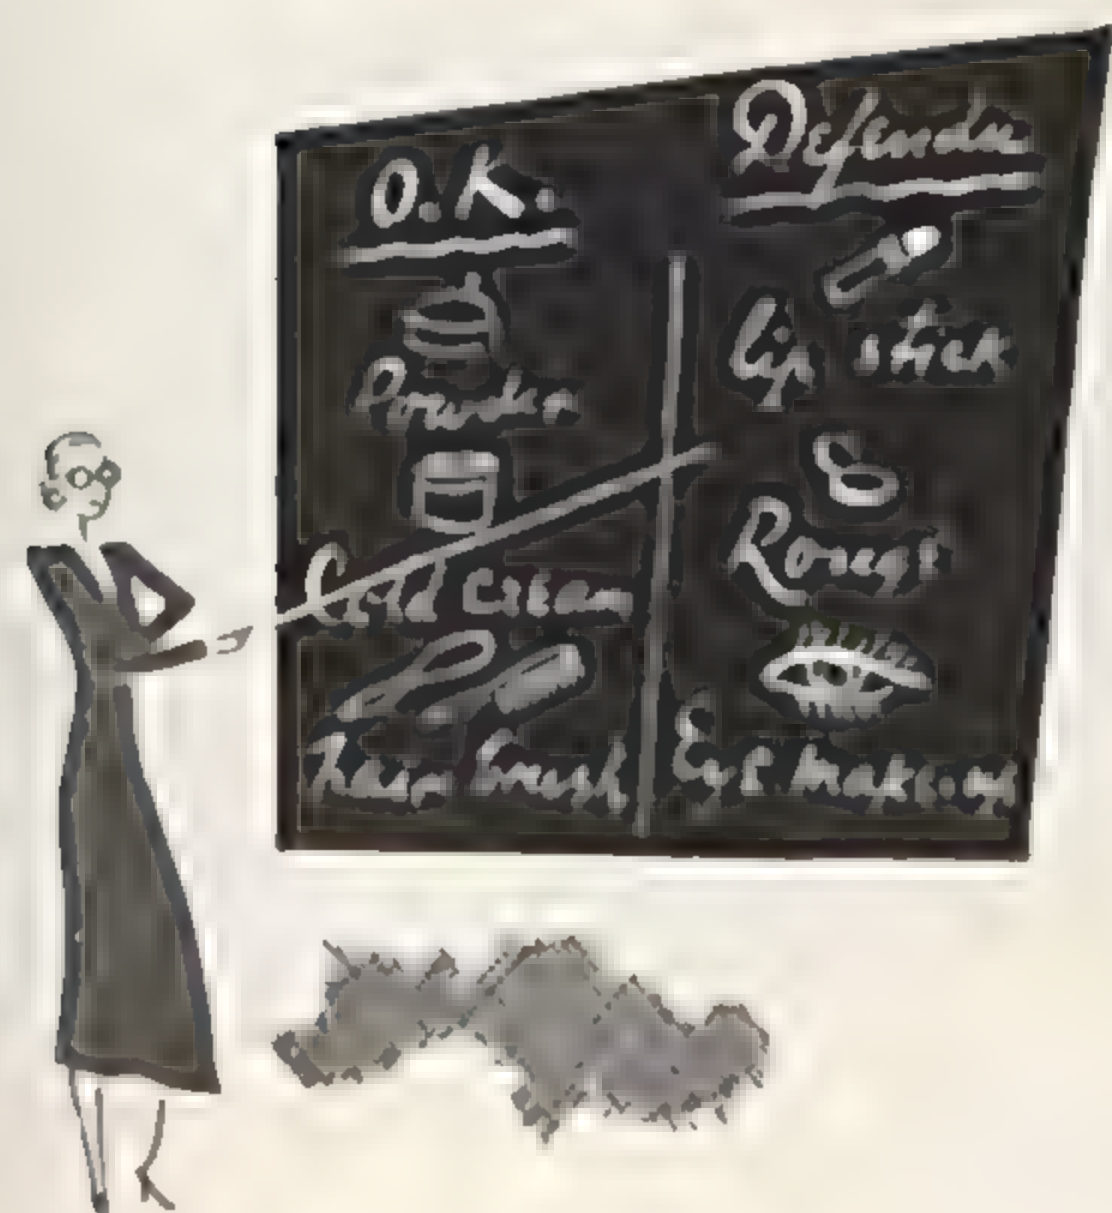 O.K.
Powder
Cold cream
Hair brush
Defendu
Lip stick
Rouge
Eye make-up